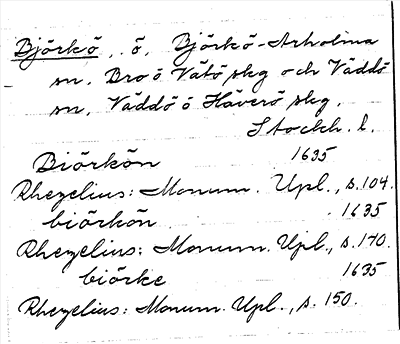 Björkö, ö, Björkö-Arholma
sn. Bro o Vätö skg och Väddö
sn. Väddö o Häverö skg.
Stockh. l.
Biörkön 1635
Rhezelius: Monum. Upl., s. 104.
biörkön 1635
Rhezelius: Monum. Upl., s. 140.
biörke 1635
Rhezelius: Monum. Upl., s. 150.